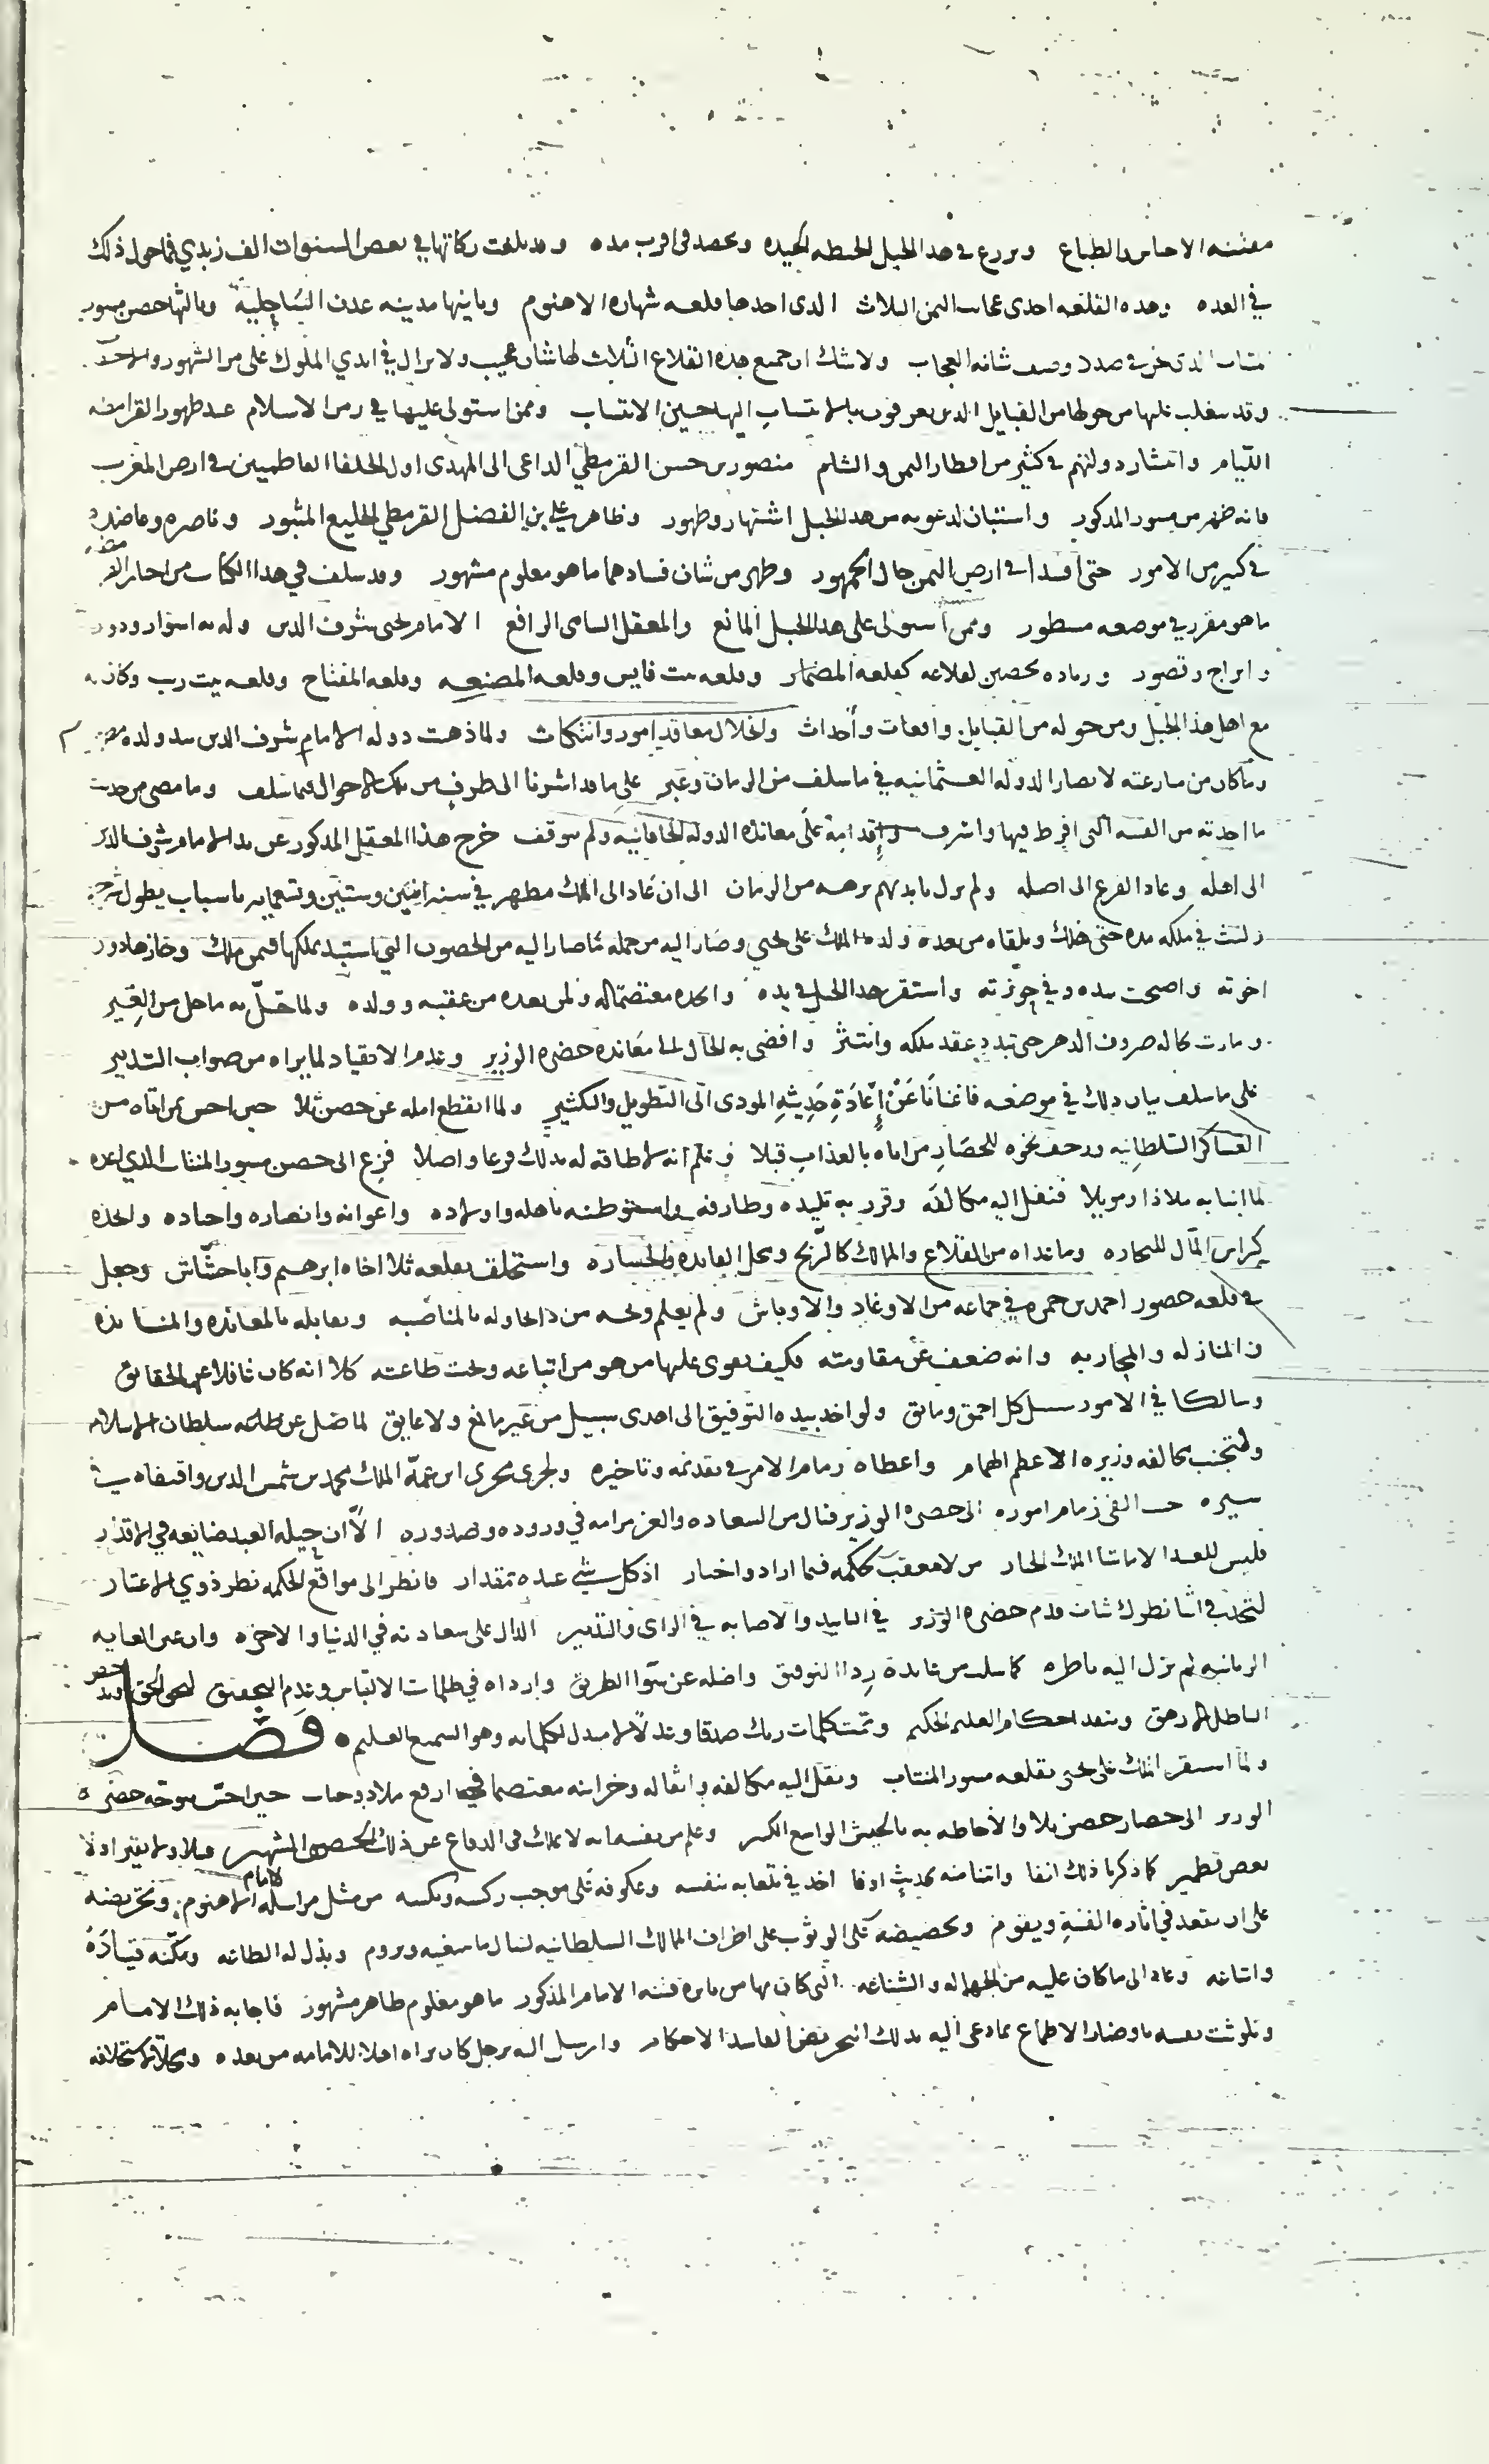 الاجناس والطباع ويزرع في هذا الجبل الحنطه الجيده ويحصد في اقرب مده وقد بلغت زكاتها في بعض السنوات الف زبدي فما حول ذلك
في العده وهذه القلعه احدى عجائب اليمن الثلاث الذي احدها قلعه شهاره الاهنوم وثانيها مدينه عدن الساحليه وثالثها حصن مسور
المنتاب الذي نحن في صدد وصف شانه العجاب ولا شك ان جميع هذه القلاع الثلاث لها شان عجيب ولا يزال في ايدي الملوك على مر الشهور والاحقاب
وقد تغلب عليها من حولها من القبايل الذين يعرفون بالانتساب الانتساب وممن استولى عليها في زمن الاسلام عند ظهور القرامطه
الليام وانتشار دولتهم في كثير من اقطار اليمن والشام منصور بن حسن القرمطي الداعي الى المهدي اول الخلفا الفاطميين في ارض المغرب
فانه ظهر من مسور المذكور واستبان لدعوته من هذا الجبل اشتهار وظهور وظاهر علي بن الفضل القرمطي الخليع المثبور وناصره وعاضده
في كثير من الامور حتى افسدا في ارض اليمن حال الجمهور وظهر من شان فسادهما ما هو معلوم مشهور وقد سلف في هذا الكتاب من اخبار
ما هو مقرر في موضعه مسطور وممن استولى على هذا الجبل المانع والمعقل السامي الرافع الامام يحيى شرف الدين وله به اسوار ودور
وابراج وقصور وزياده تحصين لقلاعه كقلعه المضمار وقلعه بيت فايس وقلعه المصنعه وقلعه المفتاح وقلعه بيت ريب وكان له
مع اهل هذا الجبل ومن حوله من القبايل واقعات وأحداث وانحلال معاقد امور وانتكاث ولما ذهبت دوله الامام شرف الدين بيد ولده
وما كان من منازعته لانصار الدوله العثمانيه في ما سلف من الزمان وغبر على ما قد اشرنا الى طرف من تلك الاحوال فيما سلف وما مضى من حديث
ما احدثه من الفتنه التي افرط فيها واسرف واقدامه على معانده الدوله الخاقانيه ولم يتوقف خرج هذا المعقل المذكور عن يد الامام شرف الدين
الى اهله وعاد الفرع الى اصله ولم يزل بايديهم برهه من الزمان الى ان عاد الى الملك مطهر في سنه اثنين وستين وتسعمايه باسباب يطول
ولبث في ملكه مده حتى هلك وتلقاه من بعده ولده الملك علي يحيى وصار اليه من جمله ما صار اليه من الحصون التي استبد بملكها فيمن ملك وحازها دون
اخوته واصبحت بيده وفي حوزته واستقر هذا الجبل في يده واتخذه معتصما له ولمن بعده من عقبه وولده ولما حل به ما حل من
كاله صروف الدهر حتى تبدد عقد ملكه وانتثر وافضى به الحال الى معانده حضره الوزير وعدم الانقياد لما يراه من صواب التدبير
على ما سلف بيان ذلك في موضعه فاغنانا عَنْ إِعَادَةِ حَدِيثِهِ المودي الى التطويل والكثير ولما انقطع امله عن حصن ثلا حين احس بمن اتاه من
العساكر السلطانيه وزحف نحوه للحصار من اتاه بالعذاب قبلا وعلم انه لا طاقه له بذلك فرعا واصلا فزع الى حصن مسور المنتاب الذي اعده
لما انابه ملاذا وموئلا فنقل اليه وقرر به تليده وطارفه واستوطنه باهله واولاده واعوانه وانصاره واجناده واتخذه
كراس المال للتجاره وما عداه من القلاع والممالك كالربح ومحل الفائده والخساره واستخلف بقلعه ثلا اخاه ابرهيم وابا حشاش وجعل
في قلعه حصور احمد بن حمزه في جماعه من الاوغاد والاوباش ولم يعلم من ذا يحاوله بالمناصبه ويقابله بالمعانده والمشاهده
والمنازله والمحاربه وانه ضعف عن مقاومته فكيف يقوى عليها من هو من اتباعه وتحت طاعته كلا انه كان غافلا عن الحقايق
وسالكا في الامور سبيل كل احمق ومايق ولو اخذ بيده التوفيق الى اهدى سبيل من غير مانع ولا عايق لما ضل عن طاعه سلطان الاسلام
ولتجنب مخالفه وزيره الاعظم الهمام واعطاه زمام الامر في تقدمه وتاخيره ولجرى مجرى ابن عمه الملك محمد بن شمس الدين واقتفاه في
سيره حيث القى زمام اموره الى حضره الوزير فنال من السعاده والعز مرامه في وروده وصدوره الا ان حيله العبد ضايعه في الاقدار
فليس للعبد الا ما شا الملك الجبار من لا معقب لحكمه فيما اراد واختار اذ كل شي عنده بمقدار فانظر الى مواقع الحكمه نظر ذوي الاعتبار
لتجد في اثنا نظرك ثبات قدم حضره الوزير في التاييد والاصابه في الراي والتدبير الدال على سعادته في الدنيا والاخره وان عين العنايه
الربانيه لم تزل اليه ناظره كما سلب من عانده ردا التوفيق واضله عن سوا الطريق وارداه في ظلمات الالتباس وعدم التحقيق
الباطل الازهق وينفذ احكام العليم الحكيم وتمت كلمات ربك صدقا وعدلا لا مبدل لكلماته وهو السميع العليم ه فصل
ولما استقر الملك علي يحيى بقلعه مسور المنتاب ونقل اليه واثقاله وخزانته معتصما في ارفع ملاذ حين احس بتوجه حضره
الوزير الى حصار حصن ثلا والاحاطه به بالجيش الواسع الكبير وعلم من نفسه انه لا يملك في الدفاع عن ذلك الحصن الشهير
كما ذكرنا ذلك انفا واتينا منه بحديث اوفا اخذ في تلعابه بنفسه وعكوفه على موجب ركسه ونكسه من مثل مراسله الامام الاهنوم وتحريضه
على ان يقعد في اثاره الفتنه ويقوم وتحضيضه على الوثوب على اطراف الممالك السلطانيه لينال ما يبتغيه ويروم وبذل له الطاعه ومكنه قياده
واتباعه وعاد الى ما كان عليه من الجهاله والشناعه التي كان بها من نايره فتنه الامام المذكور ما هو معلوم ظاهر مشهور فاجابه ذلك الامام
وتلوثت نفسه باوضار الاطماع بما دعي اليه بذلك التحريض الفاسد الاحكام وارسل اليه برجل كان يراه اهلا للامامه من بعده